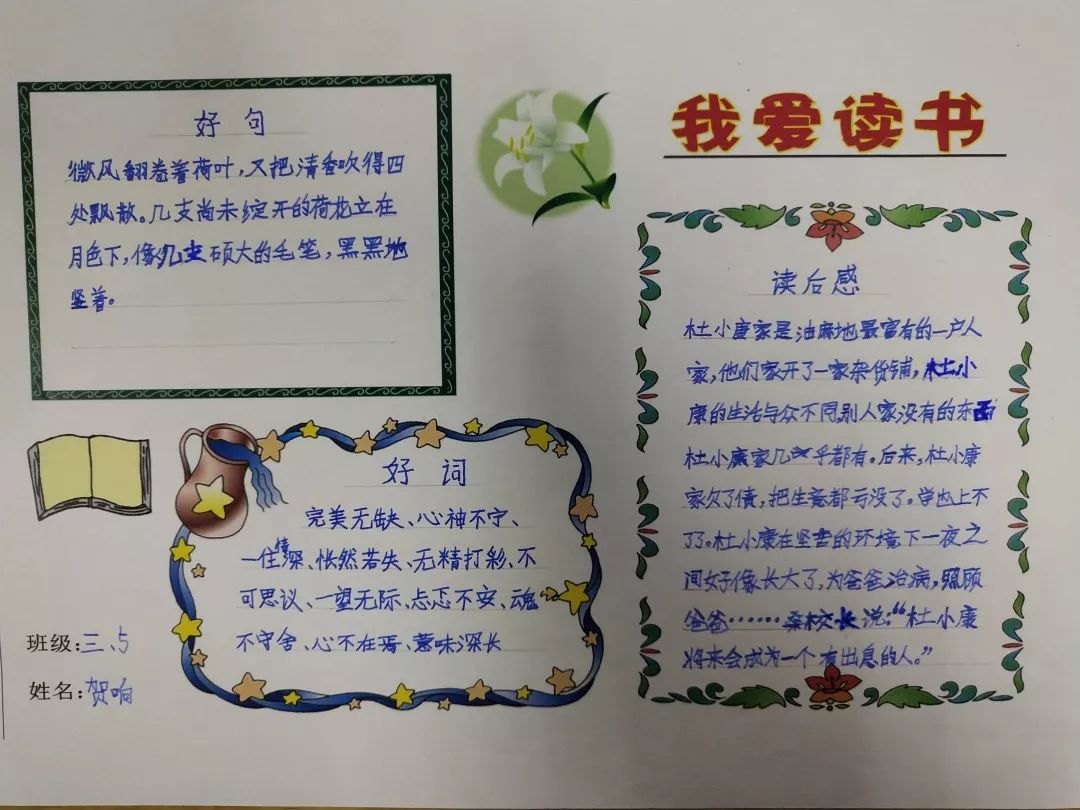 我爱读书
好句
微风翻卷着荷叶,又把清香吹得四
处飘散。几支尚未绽开的荷花立在
月色下,像几支硕大的毛笔,黑黑地
竖着。
好词
完美无缺、心神不宁、
一往情深、怅然若失、无精打彩、不
可思议、一望无际、忐忑不安、魂
不守舍、心不在焉、意味深长
班级:三、5
姓名:贺响
读后感
杜小康家是油麻地最富有的一户人
家,他们家开了一家杂货铺,杜小
康的生活与众不同,别人家没有的东西
杜小康家几乎都有。后来,杜小康
家欠了债,把生意都亏没了。学也上不
了了。杜小康在坚苦的环境下一夜之
间好像长大了,为爸爸治病,照顾
爸爸……桑校长说:“杜小康
将来会成为一个有出息的人。”